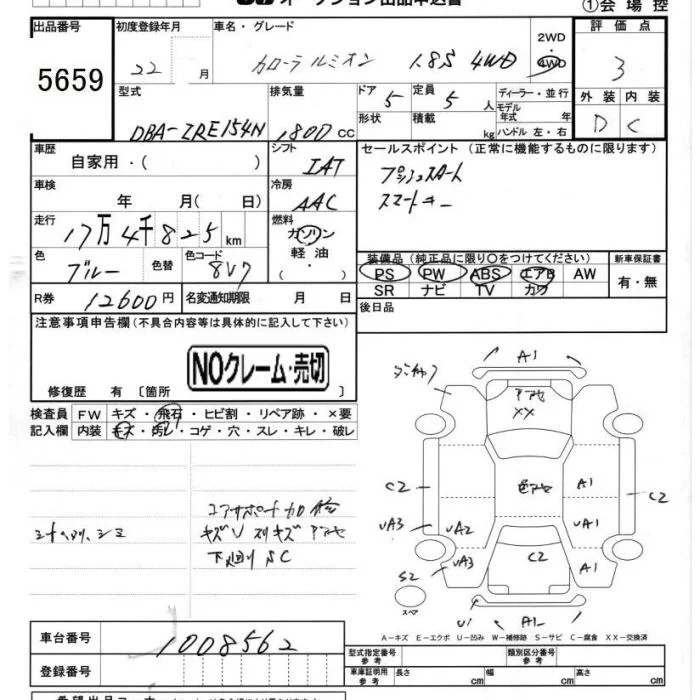 オークション出品申込書 ①会場控
出品番号 初度登録年月 車名・グレード 2WD 評価点
5659 22 月 カローラルミオン 1.8S 4WD 4WD 3
型式 排気量 ドア 定員 ディーラー・並行 外装 内装
DBA-ZRE154N 1800 cc 5 5 人 モデル年式 年 D C
形状 積載 kg ハンドル 左・右
車歴 シフト セールスポイント (正常に機能するものに限ります)
自家用・( ) IAT プッシュスタート
車検 冷房 スマートキー
年 月( 日) AAC
走行 燃料
17万4千825 km ガソリン
軽油
( ・ )
色 色替 色コード 装備品 (純正品に限り○をつけてください) 新車保証書
ブルー 8V7 PS PW ABS エアB AW 有・無
SR ナビ TV カワ
R券 12600円 名変通知期限 月 日 後日品
注意事項申告欄 (不具合内容等は具体的に記入して下さい)
NOクレーム・売切
修復歴 有 〔箇所 〕
検査員 FW キズ・飛石・ヒビ割・リペア跡・×要
記入欄 内装 キズ・汚レ・コゲ・穴・スレ・キレ・破レ
シミ
キズV スリキズ
下廻り SC
A1
XX
A1
C2 C2
UA3 UA2 UA1
UA3 C2 A1
S2
スペア U1 A1
A-キズ E-エクボ U-凹み W-補修跡 S-サビ C-腐食 XX-交換済
車台番号 1008562
登録番号
型式指定番号 参考 類別区分番号 参考
車庫証明用 参考 長さ cm 幅 cm 高さ cm
希望出品コーナー